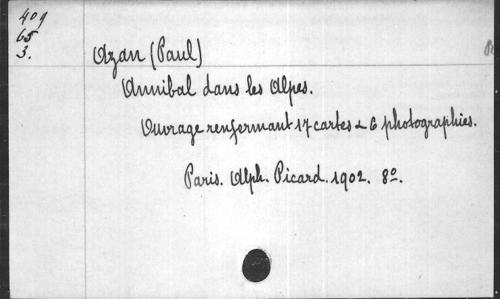 409
65
3.
Azan (Paul)
Annibal dans les Alpes.
Ouvrage renfermant 17 cartes & 6 photographies.
Paris. Alph. Picard. 1902. 8º.